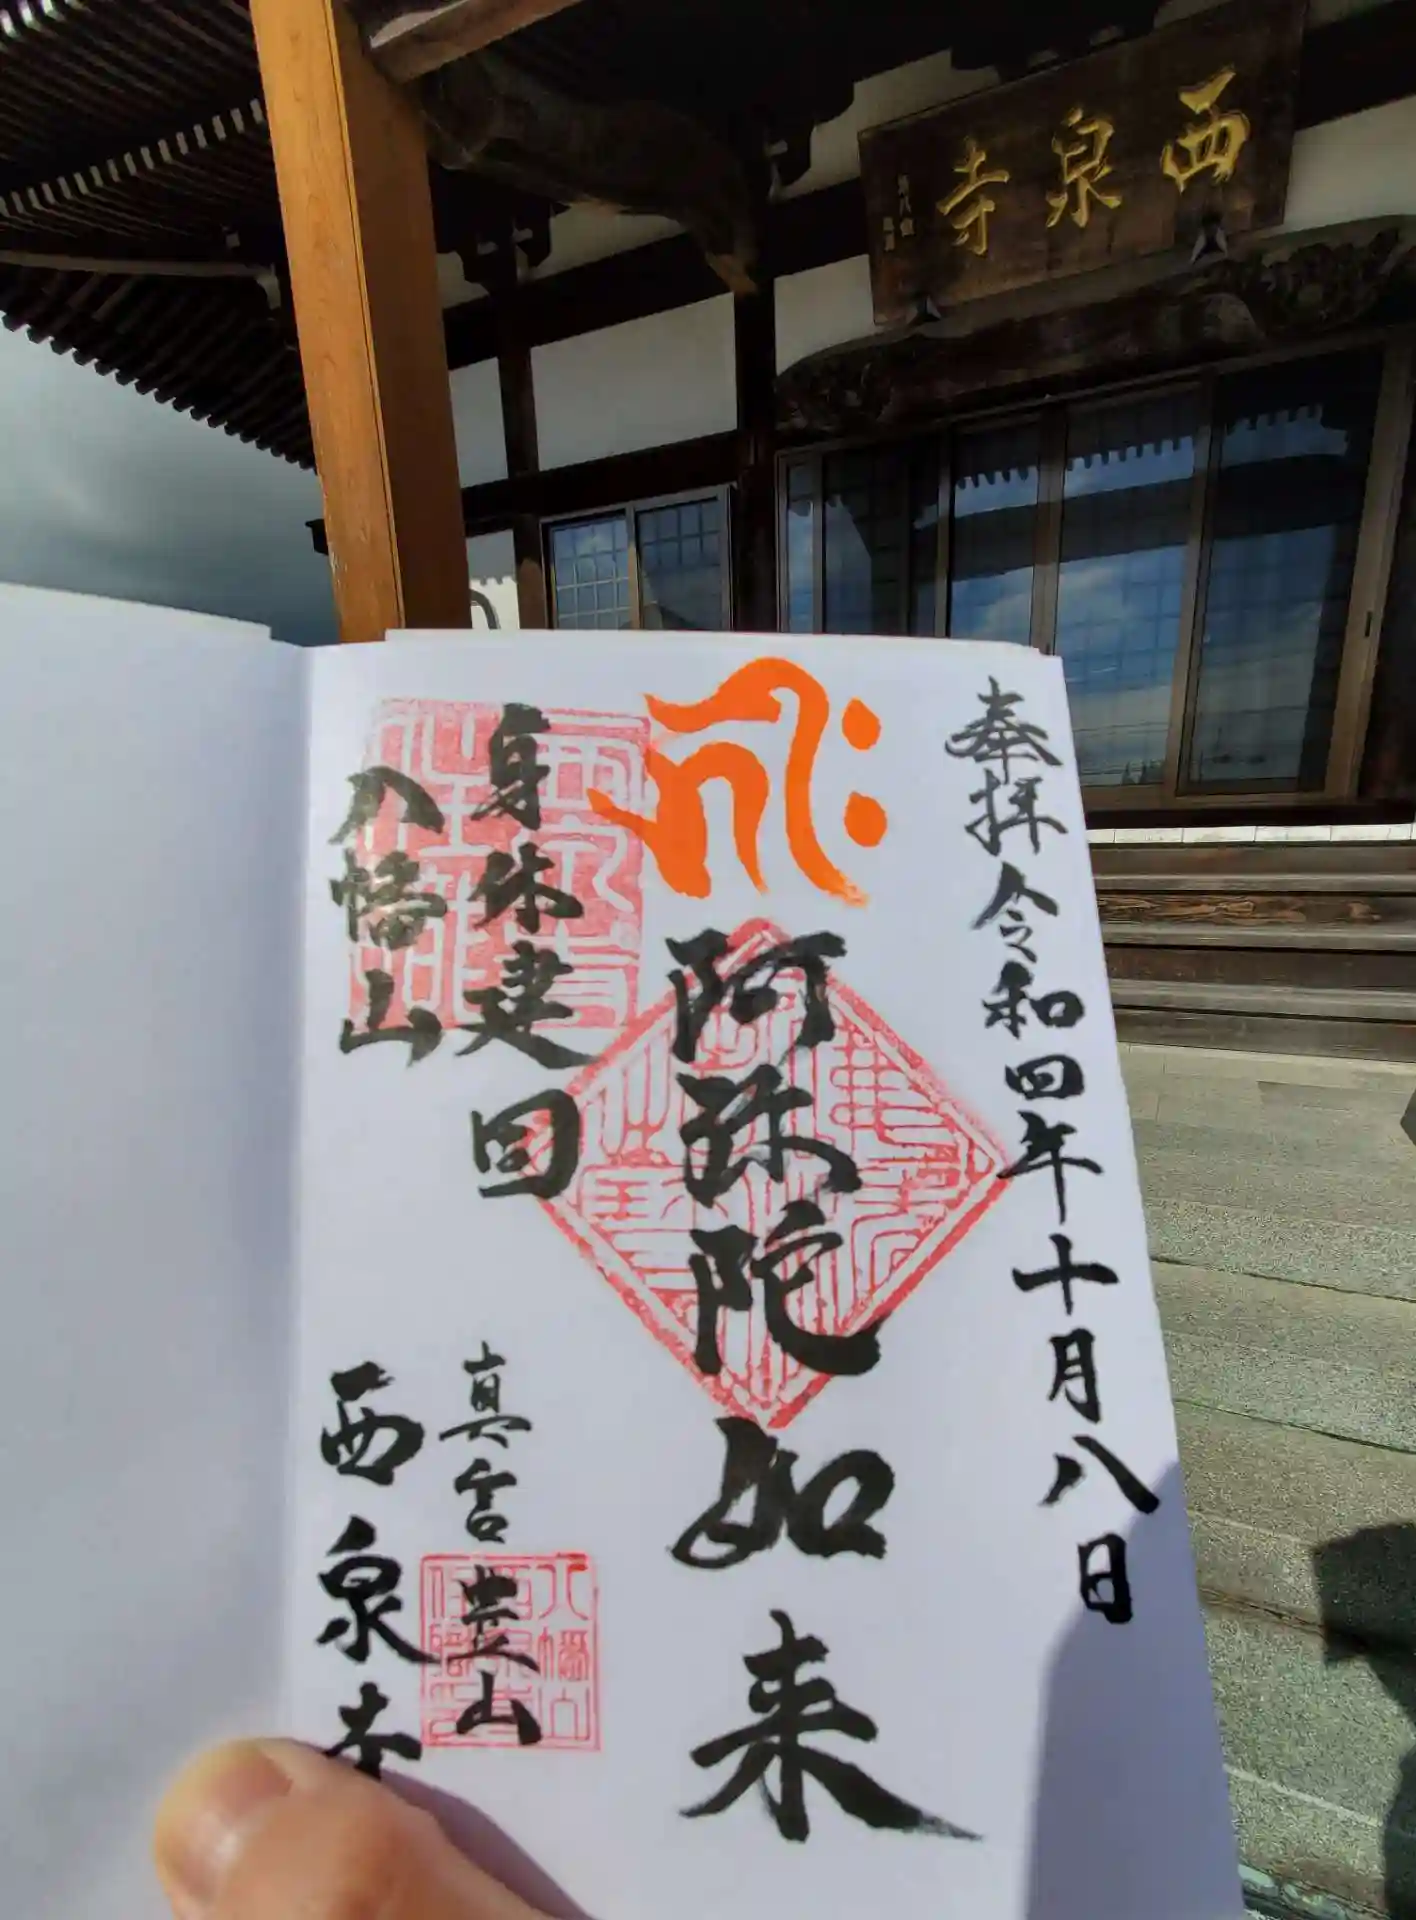 西泉寺
奉拝 令和四年十月八日
阿弥陀如来
身休建回
八幡山
真言豊山
西泉寺